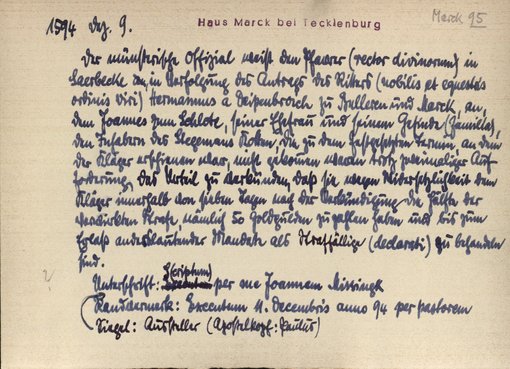 Marck 95
1594 Dez. 9. Haus Marck bei Tecklenburg
Der münsterische Offizial weist den Pfarrer (rector divinorum) in
Saerbecke an, in Verfolgung des Antrags des Ritters (nobilis et equestris
ordinis viri) Hermannus a Deipenbroich zu Bulleren und Marck, an,
dem Joannes zum Schlote, seiner Ehefrau und seinem Gesinde (familia),
den Inhabern des Stegemans Kotten, die zu dem festgesetzten Termin, an dem
der Kläger erschienen war, nicht gekommen waren trotz zweimaliger Auf-
forderung, das Urteil zu verkünden, daß sie wegen Widersetzlichkeit dem
Kläger innerhalb von sieben Tagen nach der Verkündigung die Hälfte der
verwirkten Strafe nämlich 50 Goldgulden zu zahlen haben und bis zum
Erlaß anderslautender Mandate als Straffällige (declarati) zu behandeln
sind.
Unterschrift: S(criptum) per me Joannem Missingk
Randvermerk: Executum 11. Decembris anno 94 per pastorem
Siegel: Aussteller (Apostelkopf: Paulus)